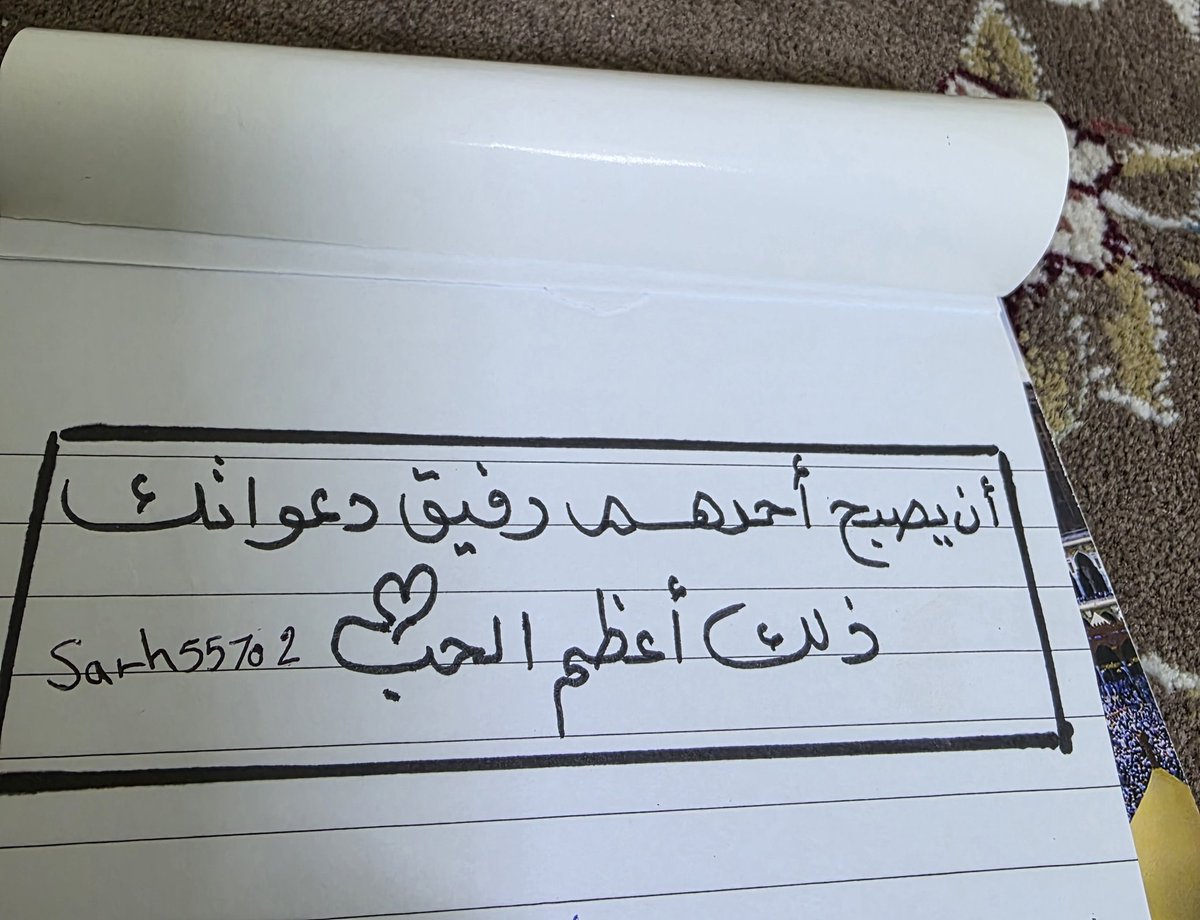 أن يصبح أحدهم رفيق دعواتك
ذلك أعظم الحب
Sarh55702